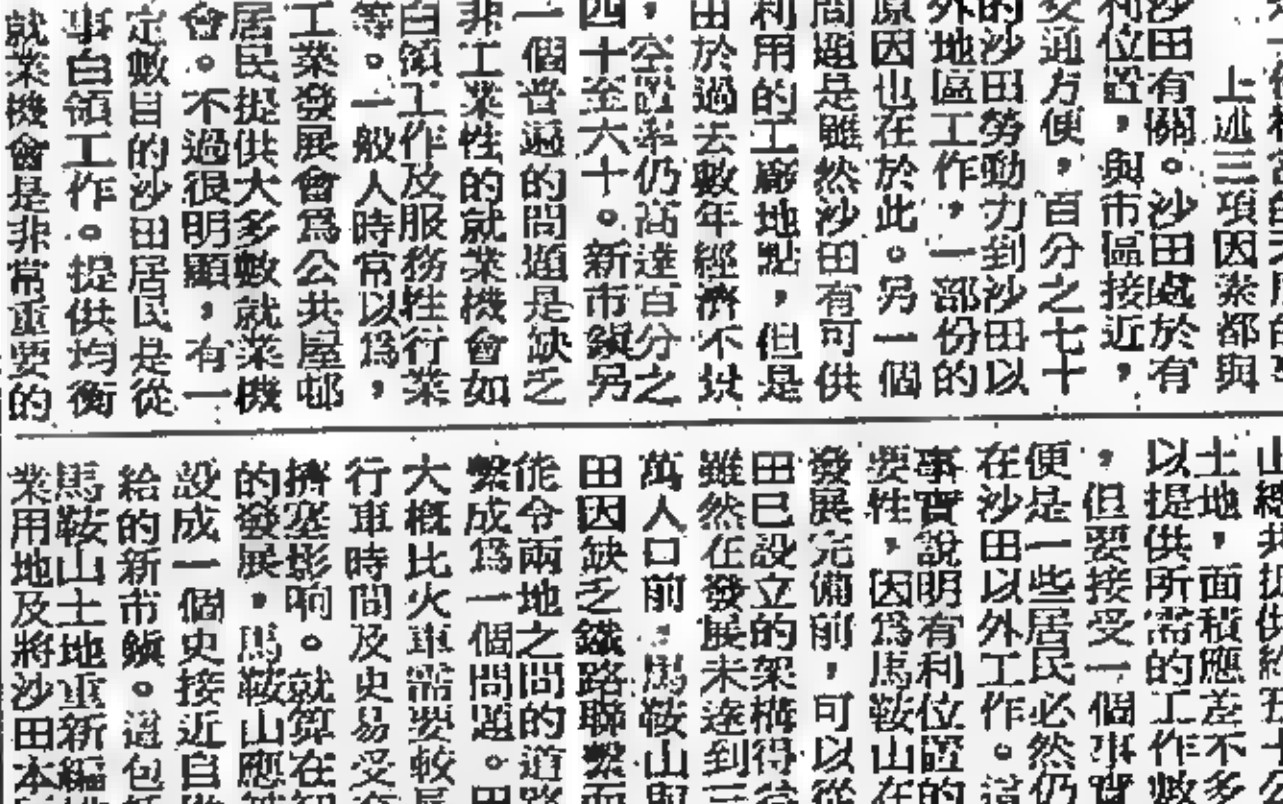 上述三項因素都與
沙田有關。沙田處於有
利位置,與市區接近,
交通方便,百分之七十
的沙田勞動力到沙田以
外地區工作,一部份的
原因也在於此。另一個
問題是雖然沙田有可供
利用的工廠地點,但是
由於過去數年經濟不景
,空置率仍高達百分之
四十至六十。新市鎮另
一個普遍的問題是缺乏
非工業性的就業機會如
白領工作及服務性行業
等。一般人時常以為,
工業發展會為公共屋邨
居民提供大多數就業機
會。不過很明顯,有一
定數目的沙田居民是從
事白領工作。提供均衡
就業機會是非常重要的
土地,面積應差不多
以提供所需的工作數
,但要接受一個事實
便是一些居民必然仍
在沙田以外工作。這
事實說明有利位置的
要性,因為馬鞍山在
發展完備前,可以從
田已設立的架構得
雖然在發展未達到三
萬人口前,馬鞍山與
田因缺乏鐵路聯繫而
能令兩地之間的道路
繫成為一個問題。
大概比火車需要較
行車時間及更易受
擠塞影响。就算在
的發展,馬鞍山應
設成一個更接近自
給的新市鎮。這包
馬鞍山土地重新編
業用地及將沙田本